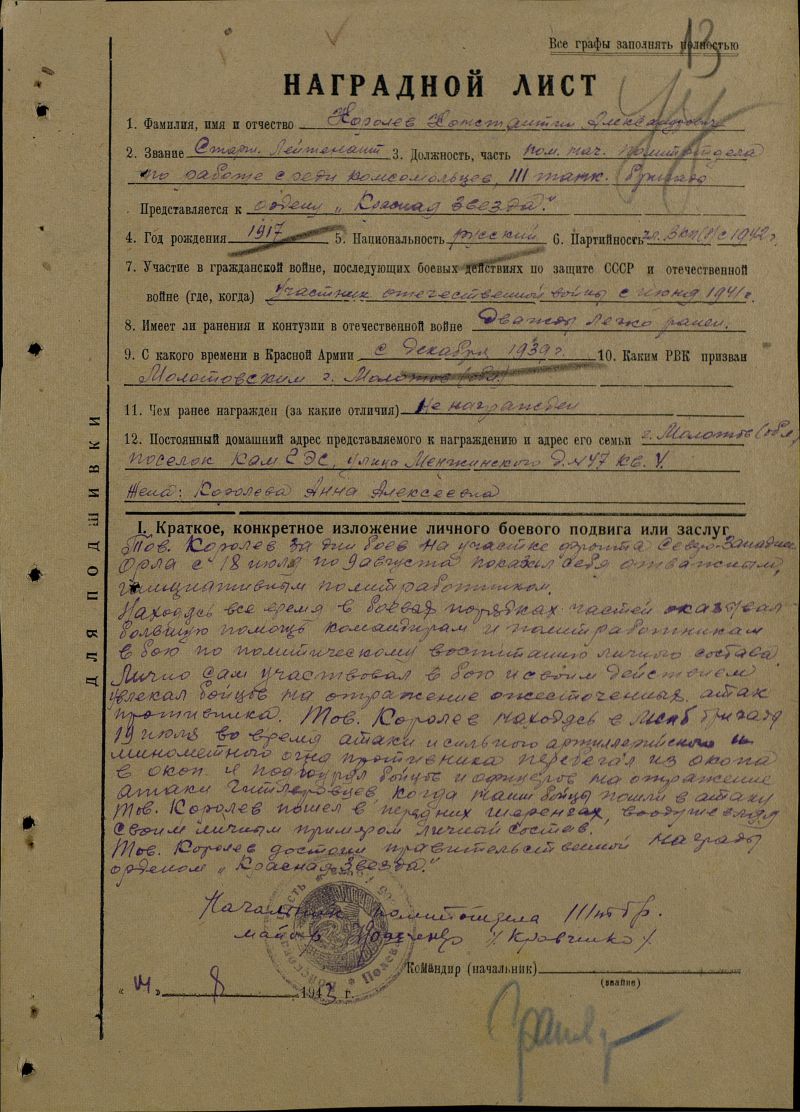 Все графы заполнять полностью
13
НАГРАДНОЙ ЛИСТ
1. Фамилия, имя и отчество Королев Константин Александрович
2. Звание Старш. Лейтенант 3. Должность, часть пом. нач. политотдела
по работе среди комсомольцев, 111 танк. бригада
Представляется к ордену „Красная Звезда."
4. Год рождения 1917 5. Национальность русский 6. Партийность чл. ВКП(б) с 1942 г.
7. Участие в гражданской войне, последующих боевых действиях по защите СССР и отечественной
войне (где, когда) Участник отечественной войны с июня 1941 г.
8. Имеет ли ранения и контузии в отечественной войне Дважды легко ранен.
9. С какого времени в Красной Армии с Декабря 1939 г. 10. Каким РВК призван
Молотовским г. Молотов (обл.)
11. Чем ранее награжден (за какие отличия) Не награжден
12. Постоянный домашний адрес представляемого к награждению и адрес его семьи г. Молотов (обл)
поселок Кам ГЭС, улица Менжинского Д. №47 кв. 4.
Жена: Королева Анна Алексеевна
I. Краткое, конкретное изложение личного боевого подвига или заслуг
Тов. Королев за дни боев на участке фронта Северо-Западнее
Орла с 18 июля по 9 августа показал себя отважным,
инициативным политработником.
Находясь все время в боевых порядках частей оказывал
большую помощь командирам и политработникам
в бою по политическому воспитанию личного состава.
Лично сам участвовал в бою и своим действием
увлекал бойцов на отражение ожесточенных атак
противника. Тов. Королев находясь в Мспб бригады
19 июля во время атаки и сильного артиллерийского и
минометного огня противника перебегал из окопа
в окоп и подбодрял бойцов и офицеров на отражение
атаки гитлеровцев, когда наши бойцы пошли в атаку
Тов. Королев пошел в передних шеренгах, воодушевляя
своим личным примером личный состав.
Тов. Королев достоин правительственной награды
орденом „Красная Звезда."
Начальник политотдела 111 тбр.
майор /Кравченко/
Командир (начальник)
(звание)
„14" 8 1943 г.
ДЛЯ ПОДШИВКИ